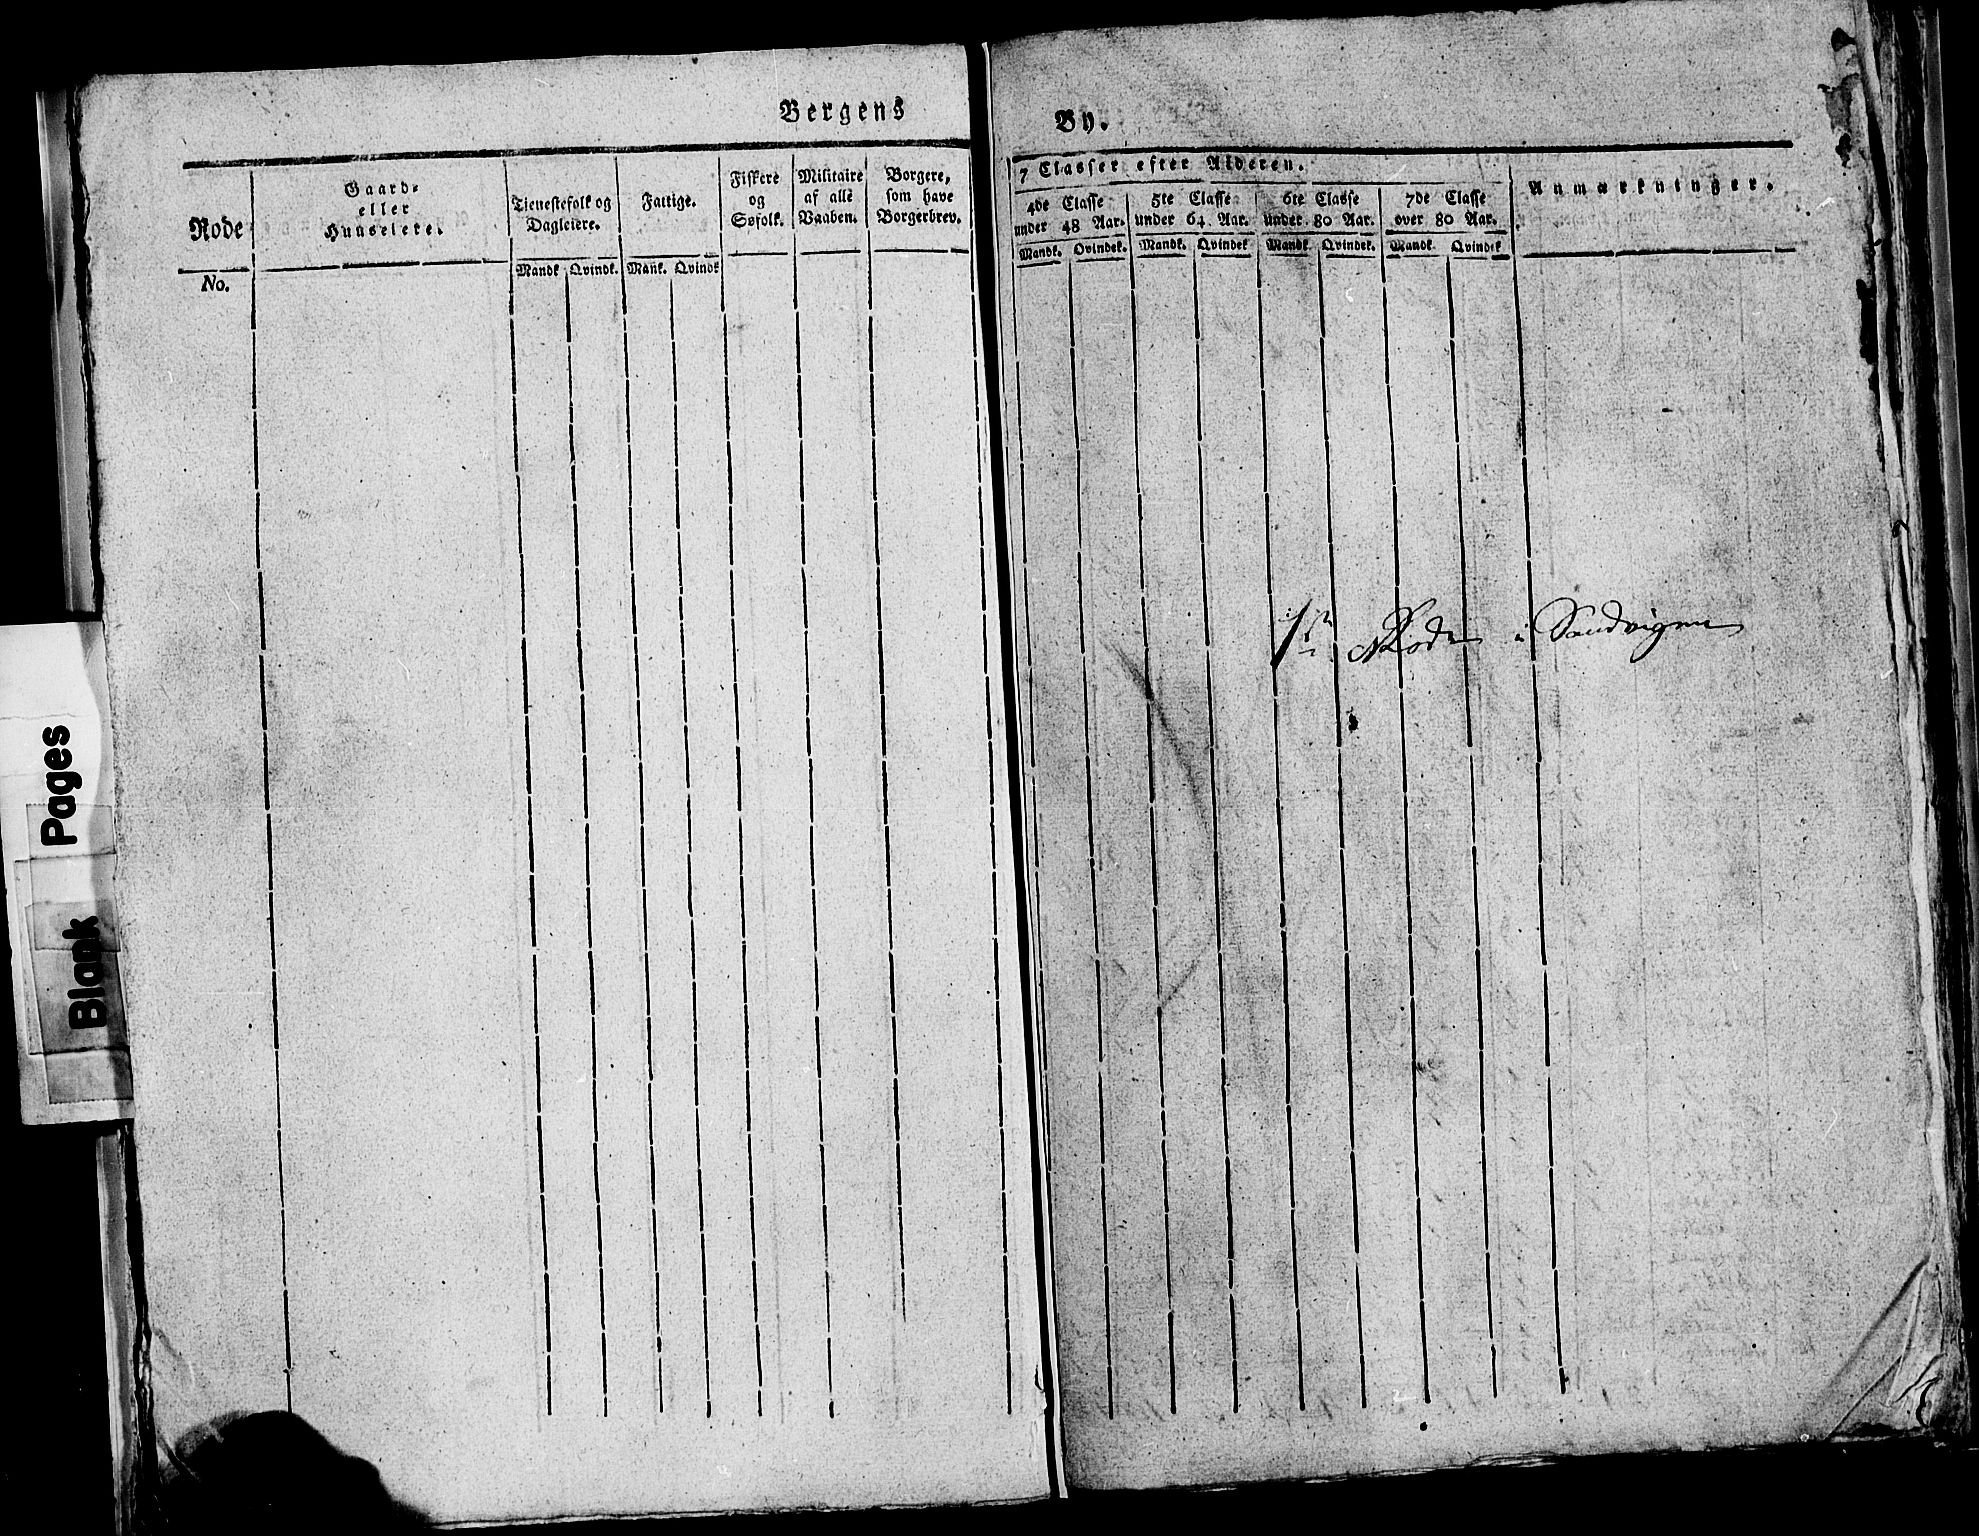 Bergens By.
Rode
No.
Gaard-
eller
Huuseiere.
Tienestefolk og
Dagleiere.
Mandk Qvindk.
Fattige.
Mank. Qvindk
Fiskere
og
Søfolk.
Militaire
af alle
Vaaben.
Borgere,
som have
Borgerbrev.
7 Classer efter Alderen.
4de Classe
under 48 Aar.
Mandk. Qvindek.
5te Classe
under 64 Aar.
Mandk. Qvindek
6te Classe
under 80 Aar.
Mandk Qvindek.
7de Classe
over 80 Aar.
Mandk Qvindek
Anmærkninger.
1ste Rode i Sandvigen
Blank Pages